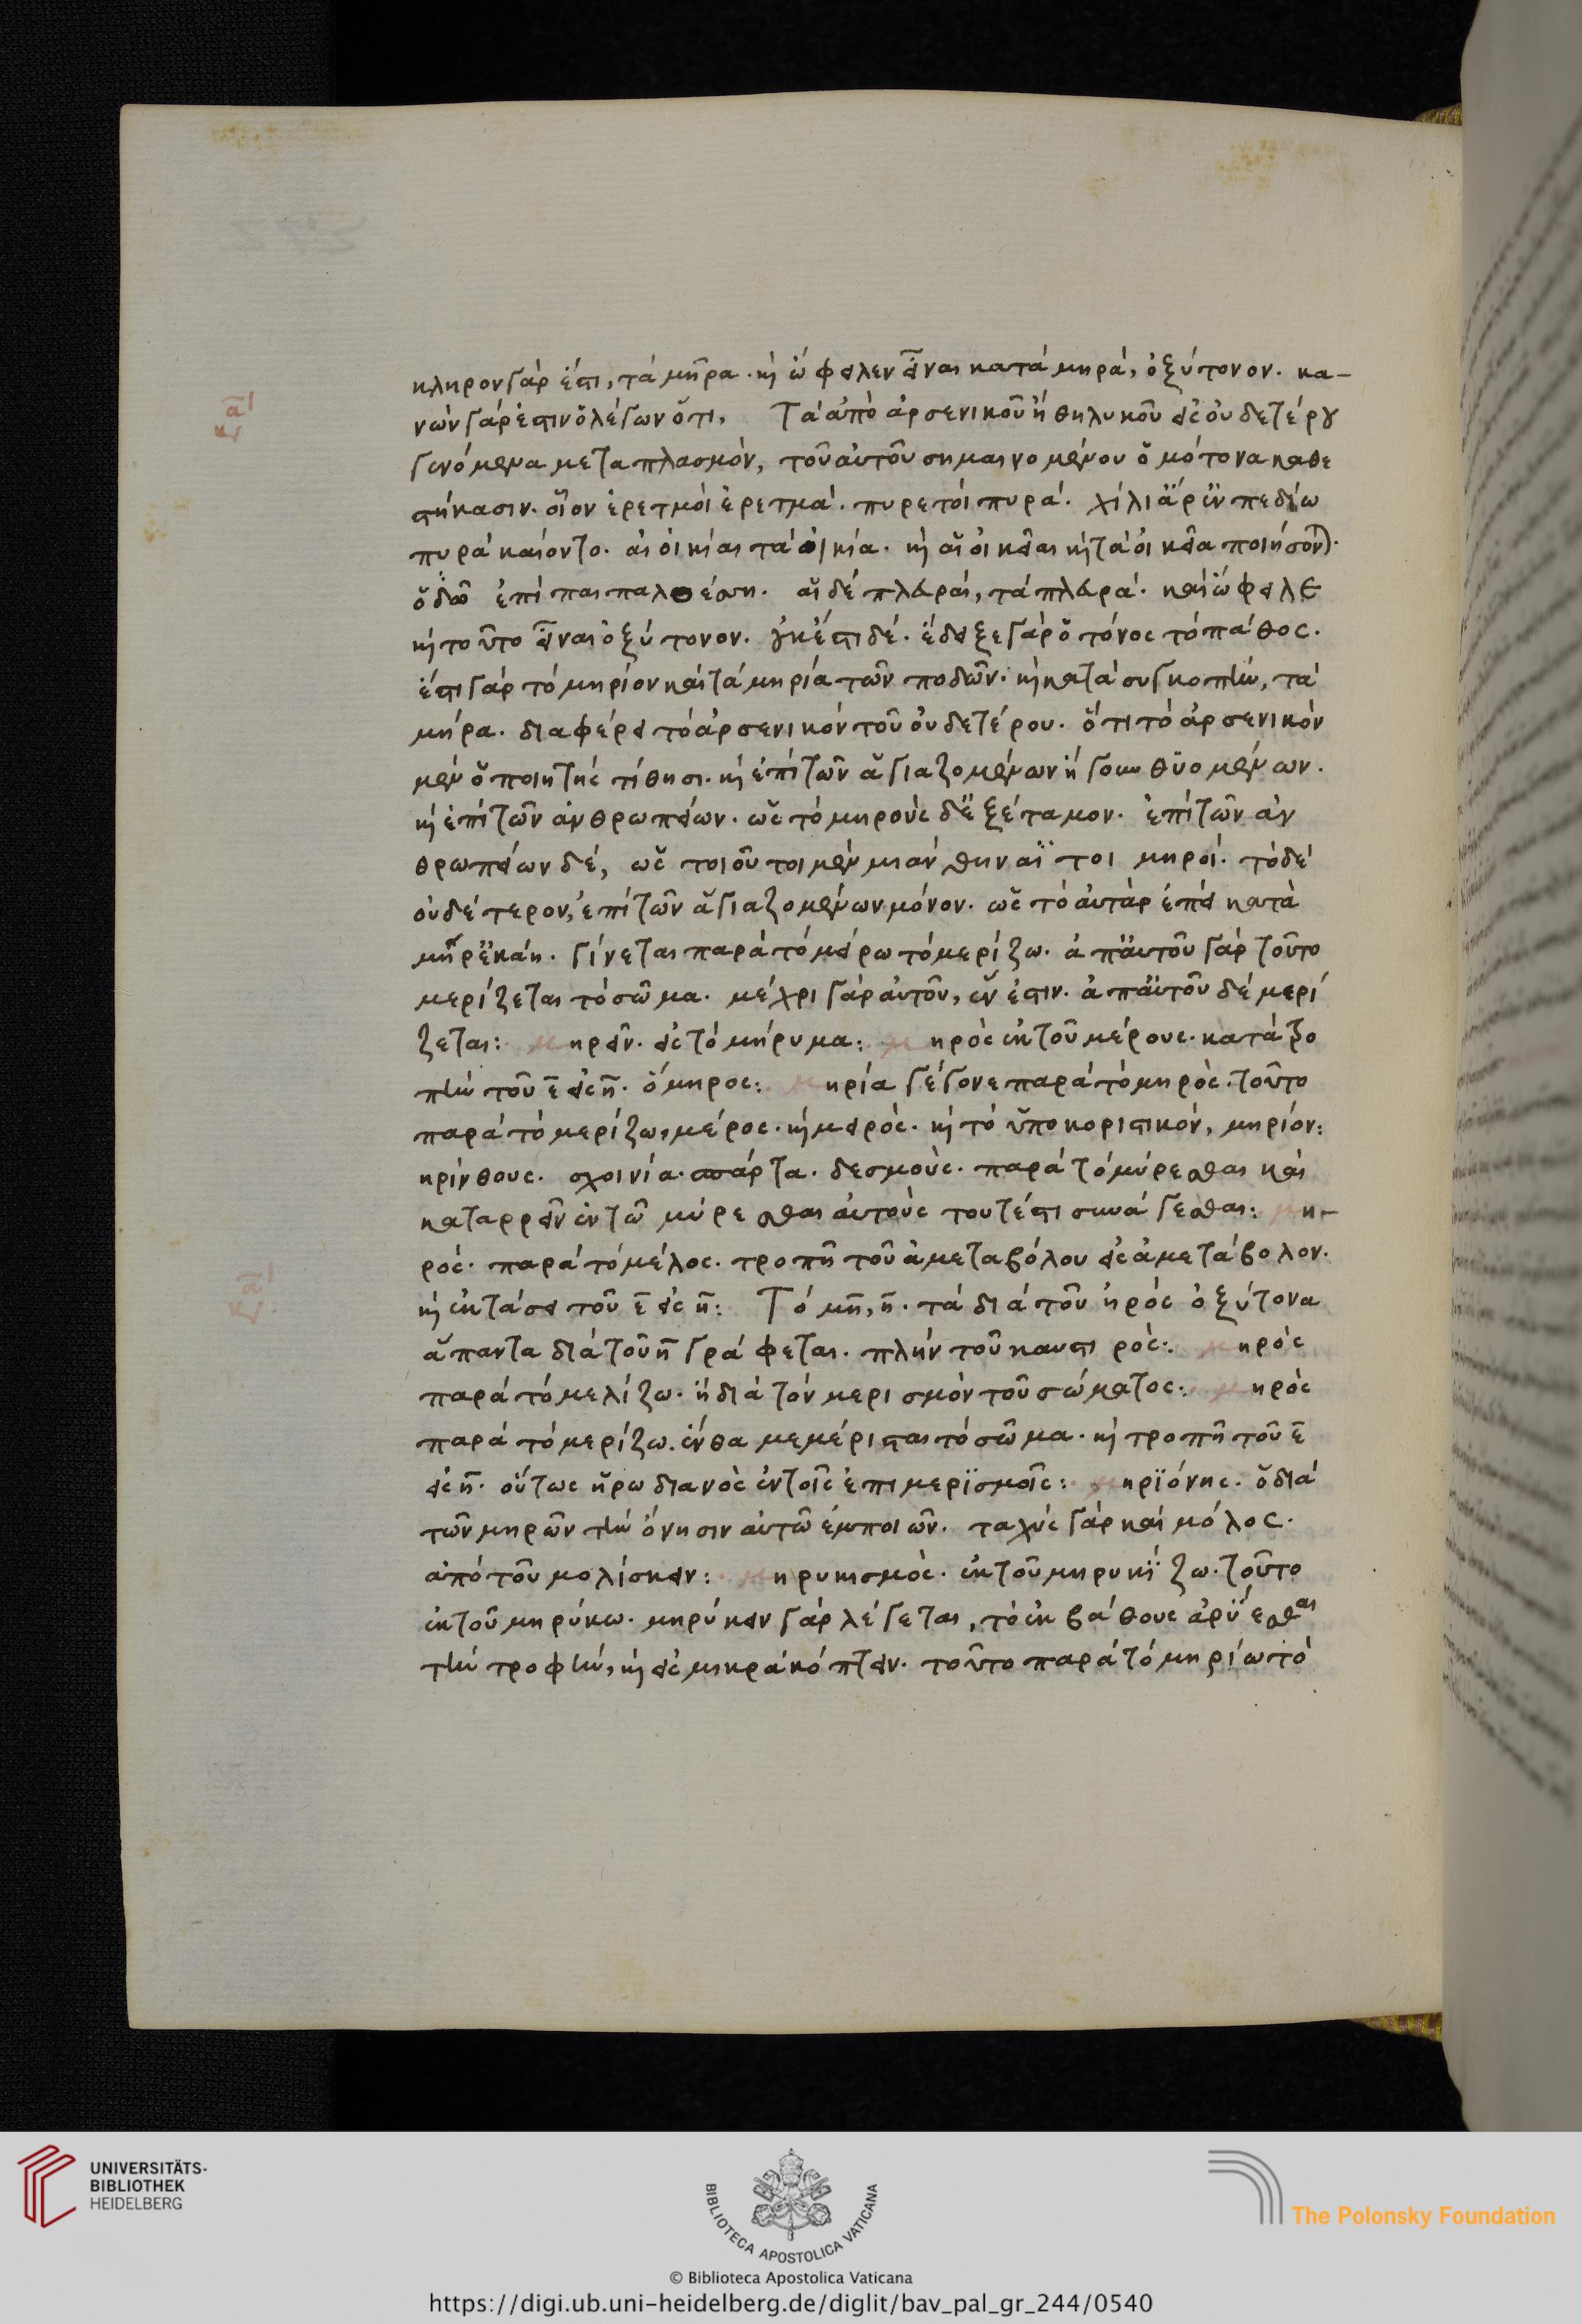 κα–
κληρον γάρ ἐστι, τὰ μῆρα. καὶ ὤφειλεν εἶναι κατὰ μηρά, ὀξύτονον. κα–
νὼν γάρ ἐστιν ὁ λέγων ὅτι, Τὰ ἀπὸ ἀρσενικοῦ ἢ θηλυκοῦ εἰς οὐδετέρου
γενόμενα μεταπλασμόν, τοῦ αὐτοῦ σημαινομένου ὁμότονα καθε
στήκασιν. οἷον ἐρετμοὶ ἐρετμά. πυρετοὶ πυρά. χίλι ἄρ ἐν πεδίω
πυρὰ καίοντο. αἱ οἰκίαι τὰ οἰκία. καὶ αἱ οἰκεῖαι καὶ τὰ οἰκεῖα ποιήσονται.
ἐπὶ παιπαλοέσση. αἱ δὲ πλευραί, τὰ πλευρά. καὶ ὤφειλε
καὶ τοῦτο εἶναι ὀξύτονον. οὐκ ἔστι δέ. ἔδειξε γὰρ ὁ τόνος τὸ πάθος.
ἔστι γὰρ τὸ μηρίον καὶ τὰ μηρία τῶν ποδῶν. καὶ κατὰ συγκοπὴν, τὰ
μήρα. διαφέρει τὸ ἀρσενικὸν τοῦ οὐδετέρου. ὅτι τὸ ἀρσενικὸν
μὲν ὁ ποιητὴς τίθησι. καὶ ἐπὶ τῶν ἁγιαζομένων ἤγουν θυομένων.
καὶ ἐπὶ τῶν ἀνθρωπείων. ὡς τὸ μηροὺς δ' ἐξέταμον. ἐπὶ τῶν ἀν
θρωπείων δέ, ὡς τοιοῦτοι μὲν μιάνθην αἵ τοι μηροί. τὸ δὲ
οὐδέτερον, ἐπὶ τῶν ἁγιαζομένων μόνον. ὡς τὸ αὐτὰρ ἐπεὶ κατὰ
μῆρ' ἐκάη. γίνεται παρὰ τὸ μείρω τὸ μερίζω. ἀπ' αὐτοῦ γὰρ τοῦτο
μερίζεται τὸ σῶμα. μέχρι γὰρ αὐτοῦ, ἕν ἐστιν. ἀπ' αὐτοῦ δὲ μερί
ζεται: μηρεῖν. εἰς τὸ μήρυμα: μηρὸς ἐκ τοῦ μέρους. κατὰ τρο
πὴν τοῦ ε εἰς η. ὅμηρος: μηρία γέγονε παρὰ τὸ μηρὸς. τοῦτο
παρὰ τὸ μερίζω, μέρος. καὶ μειρὸς. καὶ τὸ ὑποκοριστικὸν, μηρίον:
κρίνθους. σχοινία. σπάρτα. δεσμούς. παρὰ τὸ μύρεσθαι καὶ
καταρρεῖν ἐν τῶ μύρεσθαι αὐτοὺς τουτέστι συνάγεσθαι: μη–
ρός. παρὰ τὸ μέλος. τροπῆ τοῦ ἀμεταβόλου εἰς ἀμετάβολον.
καὶ ἐκτάσει τοῦ ε εἰς η: Τό μη, η. τὰ διὰ τοῦ ηρὸς ὀξύτονα
ἅπαντα διὰ τοῦ η γράφεται. πλὴν τοῦ καυστιρὸς: μηρὸς
παρὰ τὸ μελίζω. ἢ διὰ τὸν μερισμὸν τοῦ σώματος: μηρὸς
παρὰ τὸ μερίζω. ἔνθα μεμέρισται τὸ σῶμα. καὶ τροπῆ τοῦ ε
εἰς η. οὕτως ἡρωδιανὸς ἐν τοῖς ἐπιμερϊσμοῖς: μηρϊόνης. ὁ διὰ
τῶν μηρῶν τὴν ὄνησιν αὐτῶ ἐμποιῶν. ταχὺς γὰρ καὶ μόλος.
ἀπὸ τοῦ μολίσκειν: μηρυκισμὸς. ἐκ τοῦ μηρυκίζω. τοῦτο
ἐκ τοῦ μηρύκω. μηρύκειν γὰρ λέγεται, τὸ ἐκ βάθους ἀρύεσθαι
τὴν τροφὴν, καὶ εἰς μικρὰ κόπτειν. τοῦτο παρὰ τὸ μηρίω τὸ
UNIVERSITÄTS-
BIBLIOTHEK
HEIDELBERG
BIBLIOTECA APOSTOLICA VATICANA
The Polonsky Foundation
© Biblioteca Apostolica Vaticana
https://digi.ub.uni-heidelberg.de/diglit/bav_pal_gr_244/0540